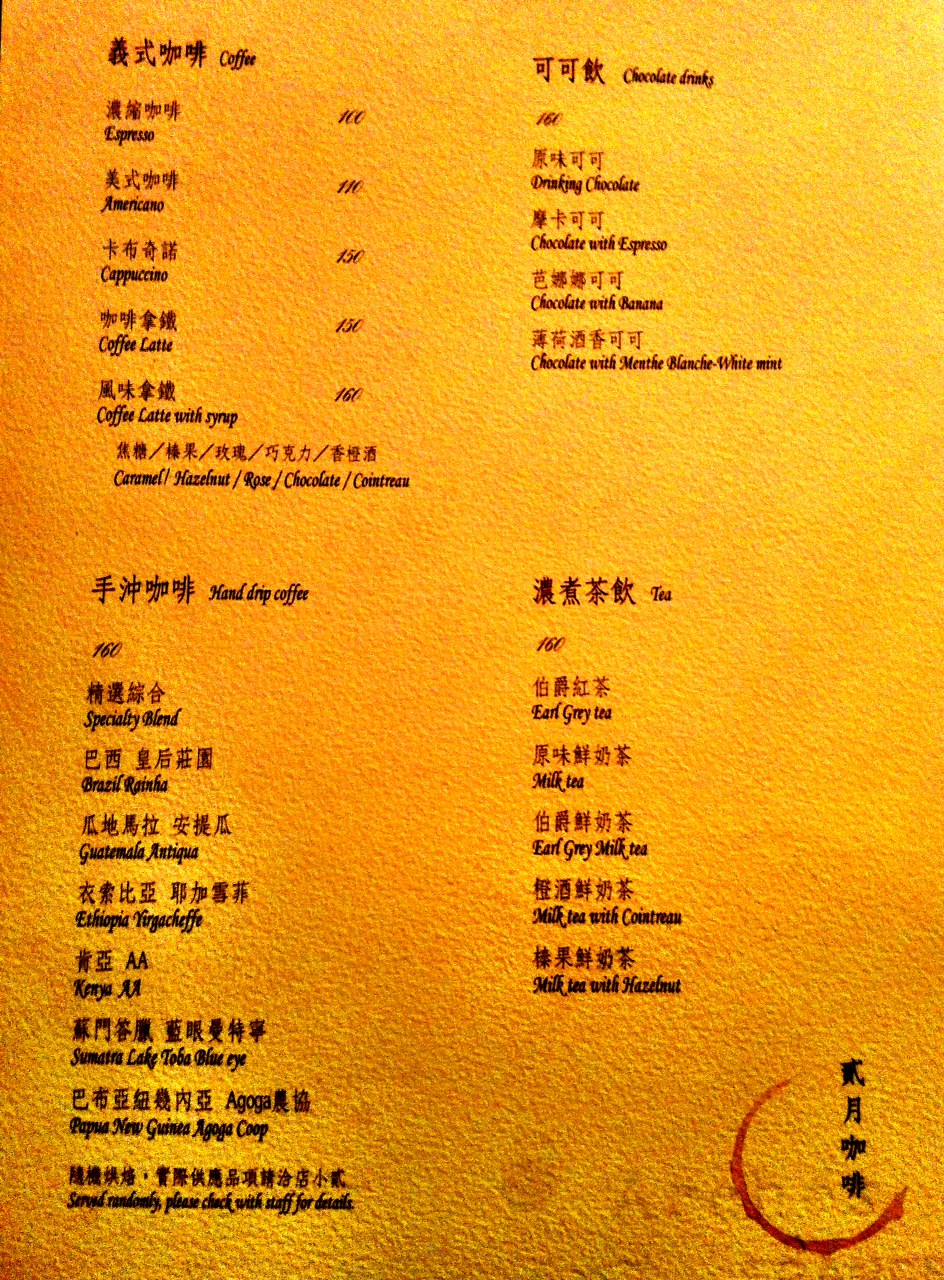 義式咖啡 Coffee
濃縮咖啡 100
Espresso
美式咖啡 110
Americano
卡布奇諾 150
Cappuccino
咖啡拿鐵 150
Coffee Latte
風味拿鐵 160
Coffee Latte with syrup
焦糖／榛果／玫瑰／巧克力／香橙酒
Caramel / Hazelnut / Rose / Chocolate / Cointreau
可可飲 Chocolate drinks
160
原味可可
Drinking Chocolate
摩卡可可
Chocolate with Espresso
芭娜娜可可
Chocolate with Banana
薄荷酒香可可
Chocolate with Menthe Blanche-White mint
手沖咖啡 Hand drip coffee
160
精選綜合
Specialty Blend
巴西 皇后莊園
Brazil Rainha
瓜地馬拉 安提瓜
Guatemala Antiqua
衣索比亞 耶加雪菲
Ethiopia Yirgacheffe
肯亞 AA
Kenya AA
蘇門答臘 藍眼曼特寧
Sumatra Lake Toba Blue eye
巴布亞紐幾內亞 Agoga農協
Papua New Guinea Agoga Coop
隨機烘焙，實際供應品項請洽店小貳
Served randomly, please check with staff for details.
濃煮茶飲 Tea
160
伯爵紅茶
Earl Grey tea
原味鮮奶茶
Milk tea
伯爵鮮奶茶
Earl Grey Milk tea
橙酒鮮奶茶
Milk tea with Cointreau
榛果鮮奶茶
Milk tea with Hazelnut
貳月咖啡